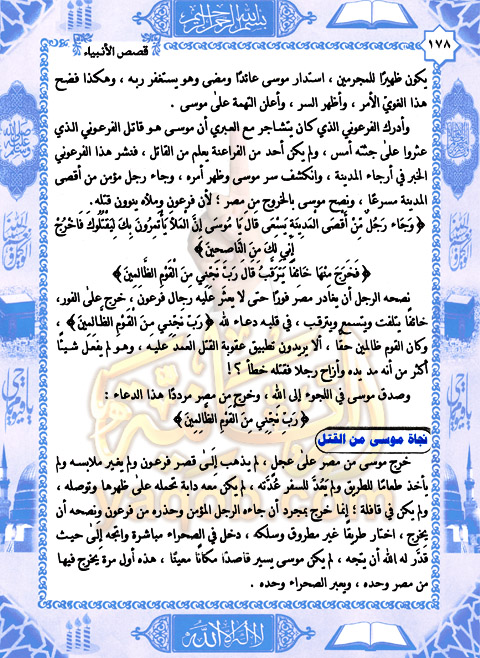 بسم الله الرحمن الرحيم
١٧٨
قصص الأنبياء
يكون ظهيرًا للمجرمين ، استدار موسى عائدًا ومضى وهو يستغفر ربه ، وهكذا فضح
هذا الغويّ الأمر ، وأظهر السر ، وأعلن التهمة على موسى .
وأدرك الفرعوني الذي كان يتشاجر مع العبري أن موسى هو قاتل الفرعوني الذي
عثروا على جثته أمس ، ولم يكن أحد من الفراعنة يعلم من القاتل ، فنشر هذا الفرعوني
الخبر في أرجاء المدينة ، وانكشف سر موسى وظهر أمره ، وجاء رجل مؤمن من أقصى
المدينة مسرعًا ، ونصح موسى بالخروج من مصر ؛ لأن فرعون وملأه ينوون قتله .
﴿ وَجَاءَ رَجُلٌ مِّنْ أَقْصَى الْمَدِينَةِ يَسْعَى قَالَ يَا مُوسَى إِنَّ الْمَلَأَ يَأْتَمِرُونَ بِكَ لِيَقْتُلُوكَ فَاخْرُجْ
إِنِّي لَكَ مِنَ النَّاصِحِينَ ﴾
﴿ فَخَرَجَ مِنْهَا خَائِفًا يَتَرَقَّبُ قَالَ رَبِّ نَجِّنِي مِنَ الْقَوْمِ الظَّالِمِينَ ﴾
نصحه الرجل أن يغادر مصر فورًا حتى لا يعثر عليه رجال فرعون ، خرج على الفور،
خائفًا يتلفت ويتسمع ويترقب ، في قلبه دعاء لله ﴿ رَبِّ نَجِّنِي مِنَ الْقَوْمِ الظَّالِمِينَ ﴾ ،
وكان القوم ظالمين حقًا ، ألا يريدون تطبيق عقوبة القتل العمد عليه ، وهو لم يفعل شيئًا
أكثر من أنه مد يده وأزاح رجلا فقتله خطأ ؟ !
وصدق موسى في اللجوء إلى الله ، وخرج من مصر مرددًا هذا الدعاء :
﴿ رَبِّ نَجِّنِي مِنَ الْقَوْمِ الظَّالِمِينَ ﴾
نجاة موسى من القتل
خرج موسى من مصر على عجل ، لم يذهب إلى قصر فرعون ولم يغير ملابسه ولم
يأخذ طعامًا للطريق ولم يَعُدَّ للسفر عُدَّته ، لم يكن معه دابة تحمله على ظهرها وتوصله ،
ولم يكن في قافلة ؛ إنما خرج بمجرد أن جاءه الرجل المؤمن وحذره من فرعون ونصحه أن
يخرج ، اختار طريقًا غير مطروق وسلكه ، دخل في الصحراء مباشرة واتجه إلى حيث
قدَّر له الله أن يتجه ، لم يكن موسى يسير قاصدًا مكانًا معينًا ، هذه أول مرة يخرج فيها
من مصر وحده ، ويعبر الصحراء وحده .
لا إله إلا الله